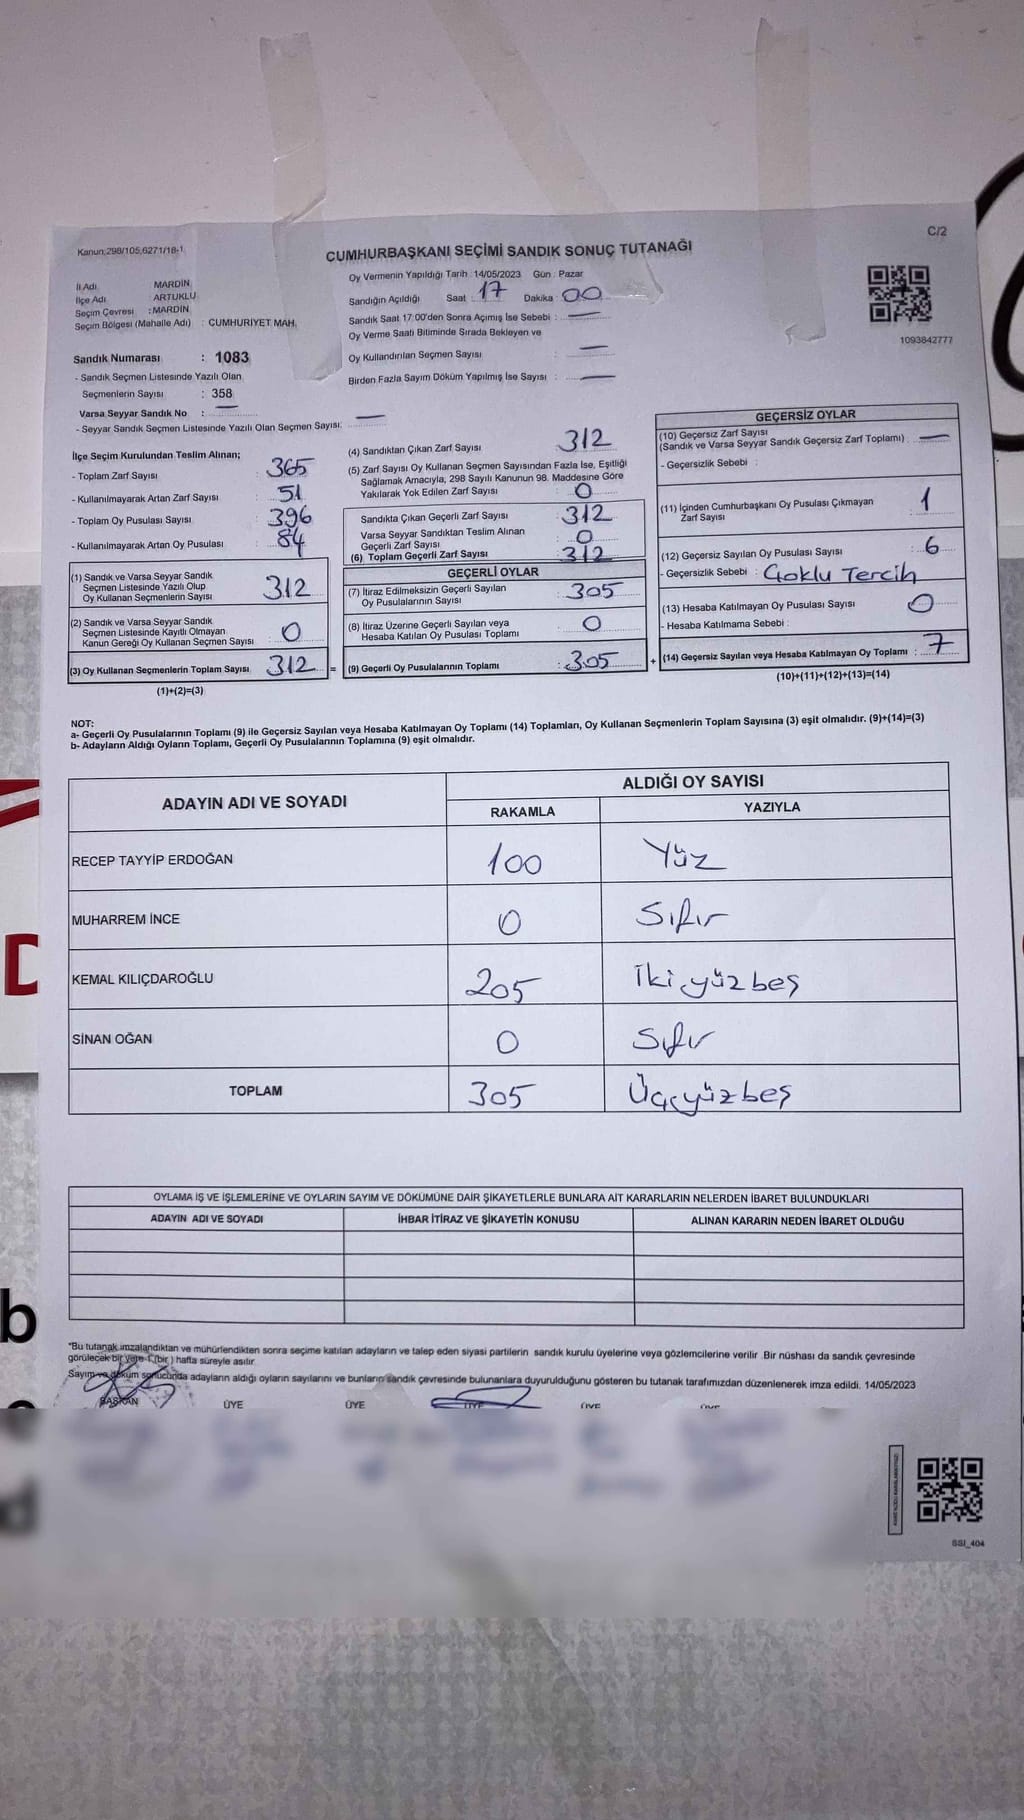 C/2
Kanun:298/105,6271/18-1
CUMHURBAŞKANI SEÇİMİ SANDIK SONUÇ TUTANAĞI
İl Adı MARDİN
İlçe Adı ARTUKLU
Seçim Çevresi : MARDİN
Seçim Bölgesi (Mahalle Adı) : CUMHURİYET MAH.
Oy Vermenin Yapıldığı Tarih : 14/05/2023 Gün : Pazar
Sandığın Açıldığı Saat : 17 Dakika : 00
Sandık Saat 17:00'den Sonra Açımış İse Sebebi : —
Oy Verme Saati Bitiminde Sırada Bekleyen ve
Oy Kullandırılan Seçmen Sayısı : —
Birden Fazla Sayım Döküm Yapılmış İse Sayısı : —
1093842777
Sandık Numarası : 1083
- Sandık Seçmen Listesinde Yazılı Olan
Seçmenlerin Sayısı : 358
Varsa Seyyar Sandık No : —
- Seyyar Sandık Seçmen Listesinde Yazılı Olan Seçmen Sayısı: —
İlçe Seçim Kurulundan Teslim Alınan;
- Toplam Zarf Sayısı : 365
- Kullanılmayarak Artan Zarf Sayısı : 51
- Toplam Oy Pusulası Sayısı : 396
- Kullanılmayarak Artan Oy Pusulası : 84
(1) Sandık ve Varsa Seyyar Sandık
Seçmen Listesinde Yazılı Olup
Oy Kullanan Seçmenlerin Sayısı : 312
(2) Sandık ve Varsa Seyyar Sandık
Seçmen Listesinde Kayıtlı Olmayan
Kanun Gereği Oy Kullanan Seçmen Sayısı : 0
(3) Oy Kullanan Seçmenlerin Toplam Sayısı : 312 =
(1)+(2)=(3)
(4) Sandıktan Çıkan Zarf Sayısı : 312
(5) Zarf Sayısı Oy Kullanan Seçmen Sayısından Fazla İse, Eşitliği
Sağlamak Amacıyla, 298 Sayılı Kanunun 98. Maddesine Göre
Yakılarak Yok Edilen Zarf Sayısı : 0
Sandıkta Çıkan Geçerli Zarf Sayısı : 312
Varsa Seyyar Sandıktan Teslim Alınan
Geçerli Zarf Sayısı : 0
(6) Toplam Geçerli Zarf Sayısı : 312
GEÇERLİ OYLAR
(7) İtiraz Edilmeksizin Geçerli Sayılan
Oy Pusulalarının Sayısı : 305
(8) İtiraz Üzerine Geçerli Sayılan veya
Hesaba Katılan Oy Pusulası Toplamı : 0
(9) Geçerli Oy Pusulalarının Toplamı : 305 +
GEÇERSİZ OYLAR
(10) Geçersiz Zarf Sayısı
(Sandık ve Varsa Seyyar Sandık Geçersiz Zarf Toplamı) : —
- Geçersizlik Sebebi :
(11) İçinden Cumhurbaşkanı Oy Pusulası Çıkmayan
Zarf Sayısı : 1
(12) Geçersiz Sayılan Oy Pusulası Sayısı : 6
- Geçersizlik Sebebi : Çoklu Tercih
(13) Hesaba Katılmayan Oy Pusulası Sayısı : 0
- Hesaba Katılmama Sebebi :
(14) Geçersiz Sayılan veya Hesaba Katılmayan Oy Toplamı : 7
(10)+(11)+(12)+(13)=(14)
NOT:
a- Geçerli Oy Pusulalarının Toplamı (9) ile Geçersiz Sayılan veya Hesaba Katılmayan Oy Toplamı (14) Toplamları, Oy Kullanan Seçmenlerin Toplam Sayısına (3) eşit olmalıdır. (9)+(14)=(3)
b- Adayların Aldığı Oyların Toplamı, Geçerli Oy Pusulalarının Toplamına (9) eşit olmalıdır.
ADAYIN ADI VE SOYADI ALDIĞI OY SAYISI
RAKAMLA YAZIYLA
RECEP TAYYİP ERDOĞAN 100 Yüz
MUHARREM İNCE 0 Sıfır
KEMAL KILIÇDAROĞLU 205 İkiyüzbeş
SİNAN OĞAN 0 Sıfır
TOPLAM 305 Üçyüzbeş
OYLAMA İŞ VE İŞLEMLERİNE VE OYLARIN SAYIM VE DÖKÜMÜNE DAİR ŞİKAYETLERLE BUNLARA AİT KARARLARIN NELERDEN İBARET BULUNDUKLARI
ADAYIN ADI VE SOYADI İHBAR İTİRAZ VE ŞİKAYETİN KONUSU ALINAN KARARIN NEDEN İBARET OLDUĞU
*Bu tutanak imzalandıktan ve mühürlendikten sonra seçime katılan adayların ve talep eden siyasi partilerin sandık kurulu üyelerine veya gözlemcilerine verilir. Bir nüshası da sandık çevresinde
görülecek bir yere 1 (bir) hafta süreyle asılır.
Sayım ve döküm sonucunda adayların aldığı oyların sayılarını ve bunların sandık çevresinde bulunanlara duyurulduğunu gösteren bu tutanak tarafımızdan düzenlenerek imza edildi. 14/05/2023
BAŞKAN ÜYE ÜYE ÜYE ÜYE ÜYE
SSI_404